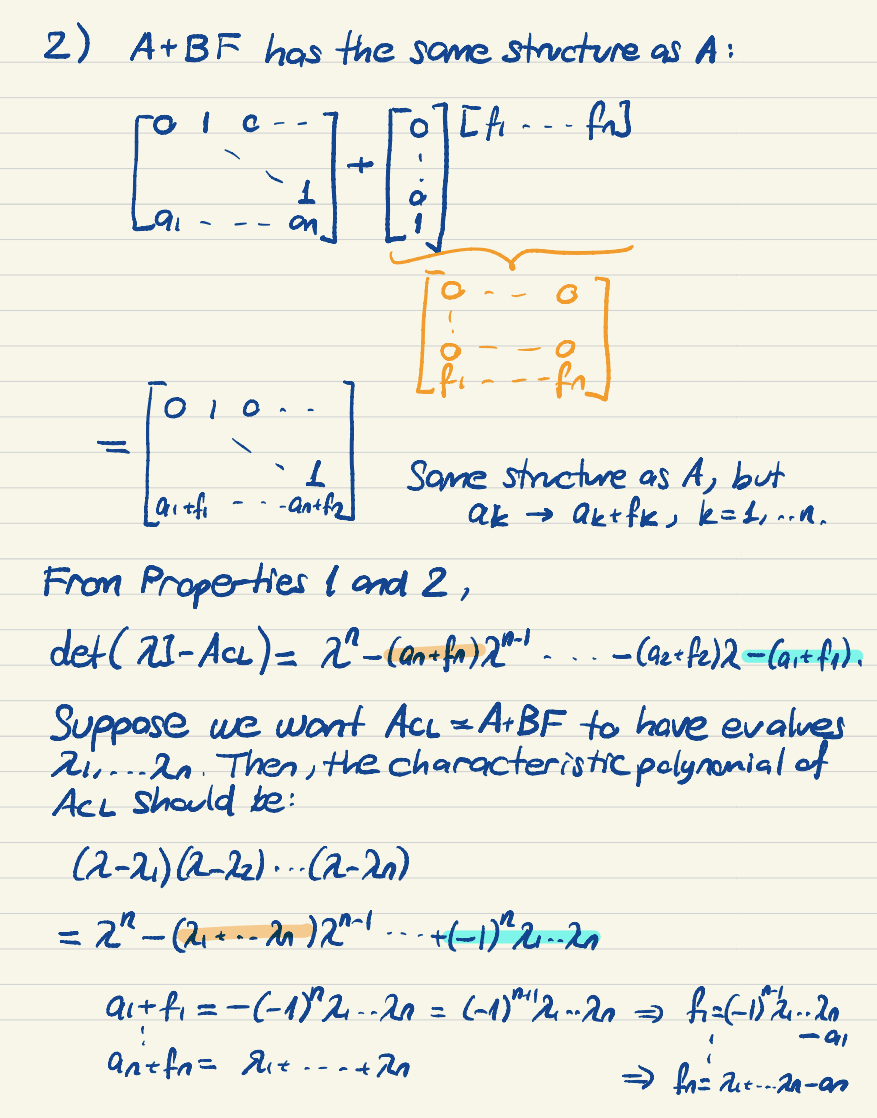 2) A+BF has the same structure as A:
[0 1 0 - - ⋱ 1 a1 - - - - an] + [0 ⋮ 0 1] [f1 - - - fn]
[0 - - 0 ⋮ 0 - - 0 f1 - - - - fn]
= [0 1 0 - - ⋱ 1 a1+f1 - - - an+f2]
Same structure as A, but
ak → ak+fk, k=1,..n.
From Properties 1 and 2,
det(λI-ACL) = λ^n -(an+fn)λ^n-1 . . . . -(a2+f2)λ -(a1+f1).
Suppose we want ACL = A+BF to have evalves
λ1,...λn. Then, the characteristic polynomial of
ACL should be:
(λ-λ1)(λ-λ2)...(λ-λn)
= λ^n -(λ1+...λn)λ^n-1 ....+(-1)^n λ1..λn
a1+f1 = -(-1)^n λ1..λn = (-1)^n+1 λ1..λn ⇒ f1=(-1)^n-1 λ1..λn
-a1
⋮ ⋮
an+fn = λ1+ - - - - +λn ⇒ fn= λ1+...λn-an